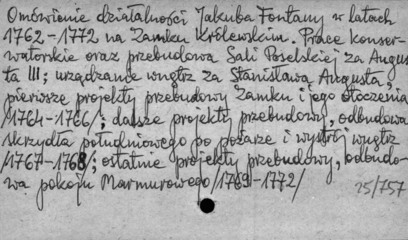 Omówienie działalności Jakuba Fontany w latach
1762-1772 na Zamku Królewskim. Prace konser-
watorskie oraz przebudowa Sali Poselskiej za Augus
ta III; urządzanie wnętrz za Stanisława Augusta,
pierwsze projekty przebudowy Zamku i jego otoczenia
/1764-1766/; dalsze projekty przebudowy, odbudowa
skrzydła południowego po pożarze i wystrój wnętrz
/1767-1768/; ostatnie projekty przebudowy, odbudo-
wa pokoju Marmurowego /1769-1772/
25/757